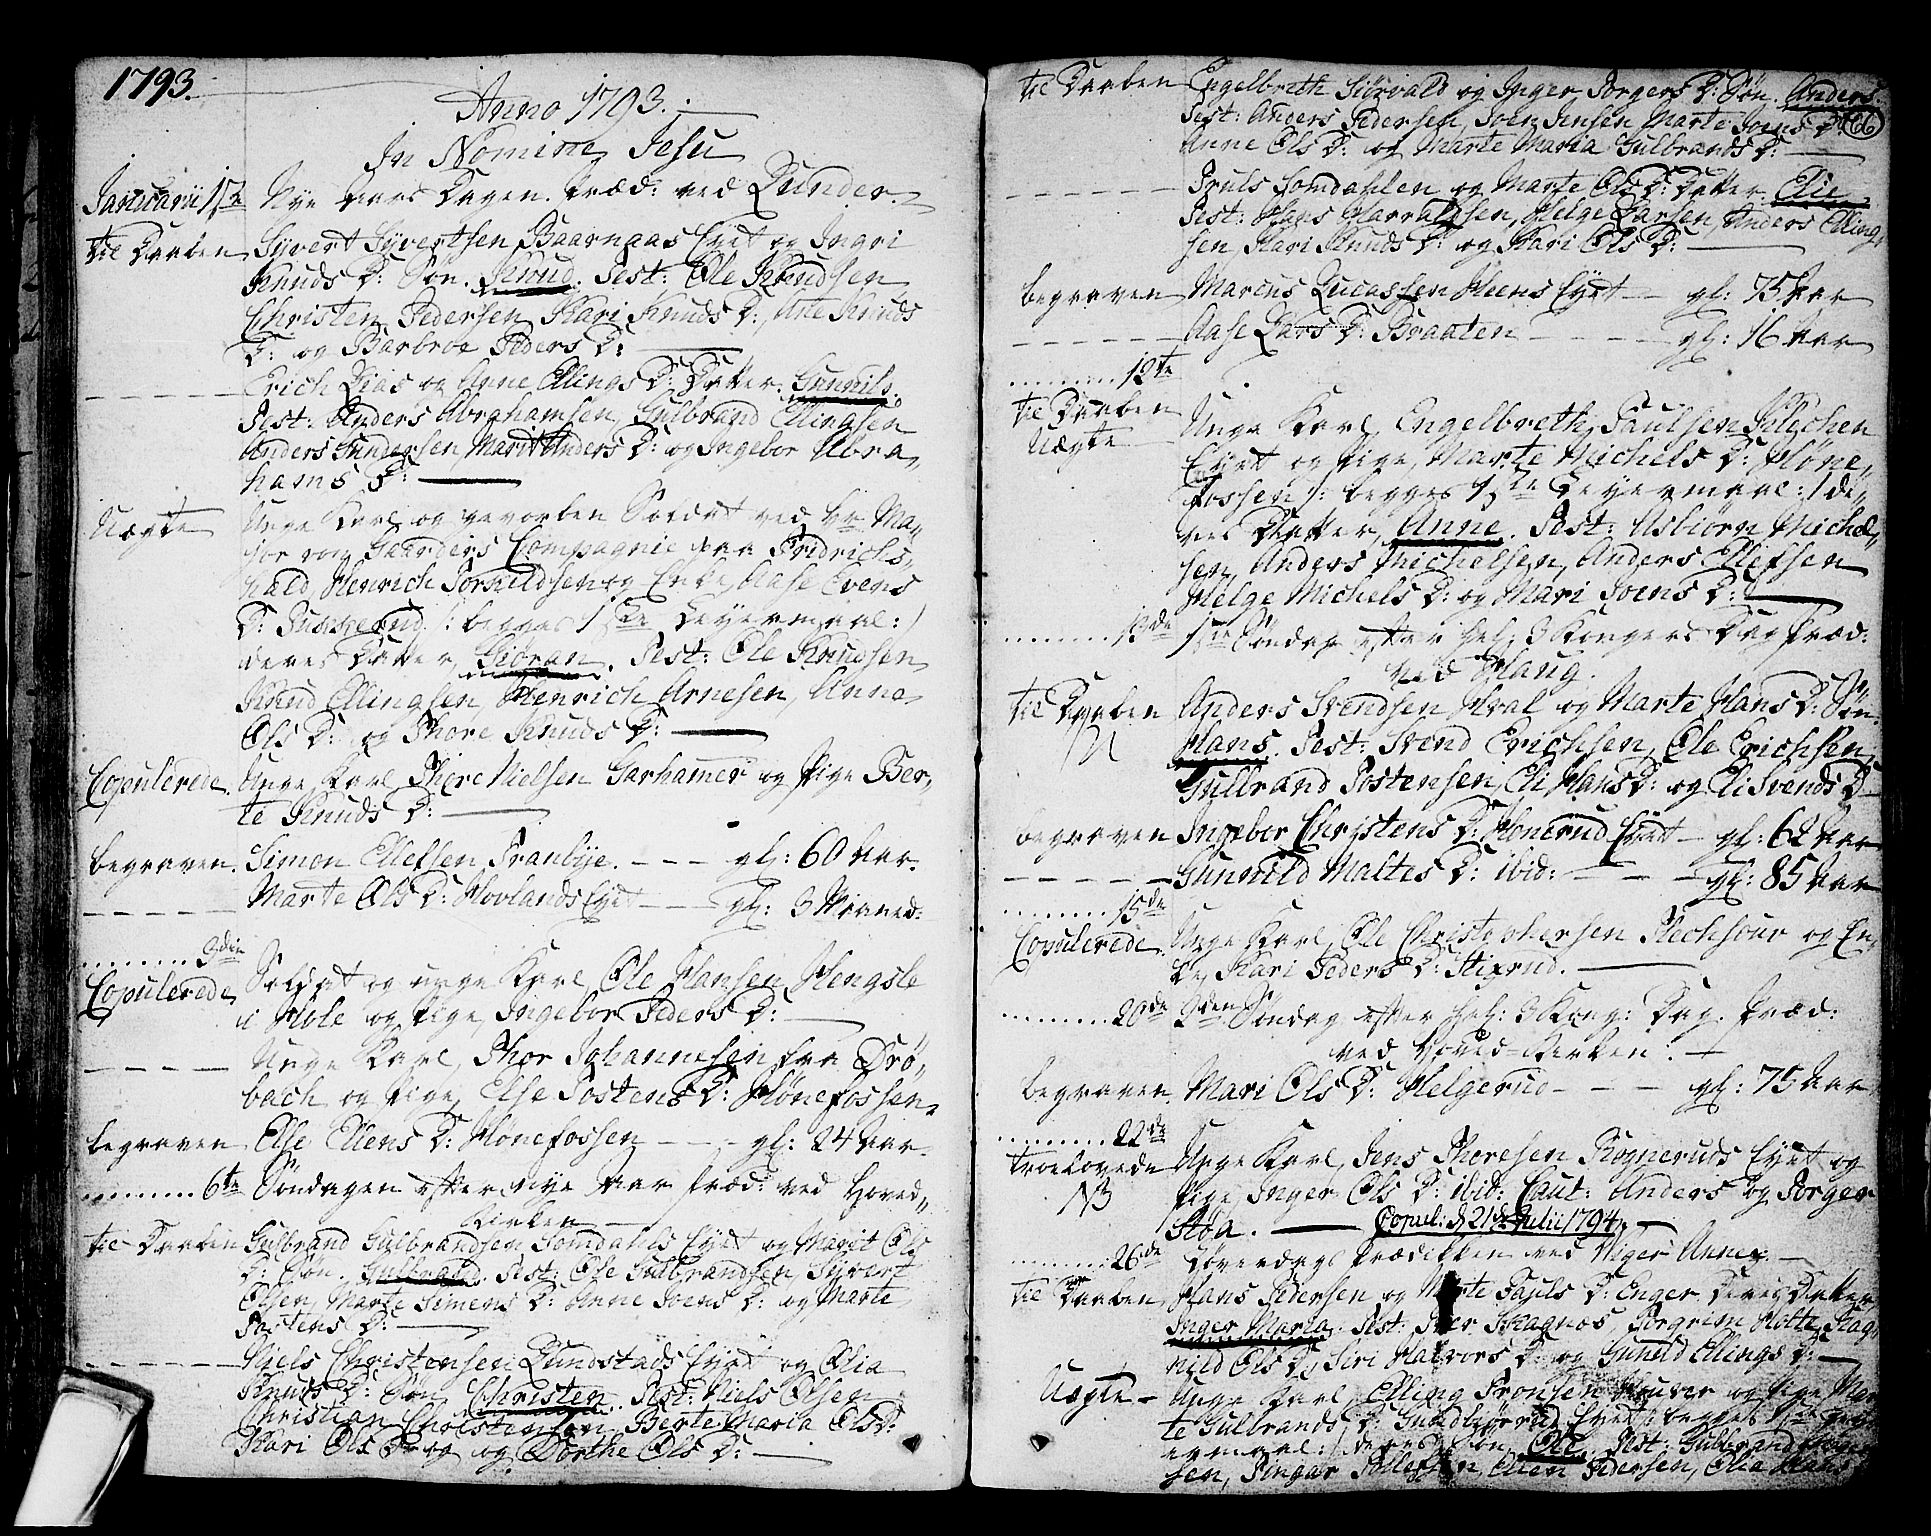 1793.
Anno 1793.
In Nomine Jesu
Januarii 1ste Nye Aars Dagen. Præd: ved Lunder.
til Daaben Syvert Syvertsen Baarnaas Eyet og Ingri
Knuds D: Søn. Knud. Test: Ole Knudsen
Christen Pedersen, Kari Knuds D:, Ane Knuds
D: og Barbroe Peders D:
Erich Lias og Anne Ellings D: Datter. Gunnild.
Test: Anders Abrahamsen, Gulbrand Ellingsen
Anders Gundersen, Marit Anders D: og Ingebor Abra,,
hams D:
Uægte Unge Karl og gevorben Soldat ved Hr. Ma,,
jor von Compagnie paa Fridrichs,,
hald, Henrich Torkildsen og Enke, Aase Evens
D: /: begges 1ste Leyermaal:/
deres Datter, Giøran. Test: Ole Knudsen
Knud Ellingsen, Henrich Arnesen, Anne
Ols D: og Thore Knuds D:
Copulerede. Unge Karl Thore Nielsen Garhamer og Pige Ber,,
te Knuds D:
begraven. Simon Ellefsen Tranbye. --- gl: 60 Aar.
Marte Ols D: Hovlands Eyet -- gl: 3 Maaned:
3die
Copulerede Soldat og unge Karl Ole Hansen Hengsle
i Hole og Pige, Ingebor Peders D:
Unge Karl, Thor Johannesen fra Drø,,
bach og Pige, Else Tostens D: Hønefossen.
begraven Else Ellens D: Hønefossen --- gl: 24 Aar.
6te Søndagen efter nye Aar Præd: ved Hoved,,
kirken
til Daaben Gulbrand Gulbrandsen Somdahls Eyet og Marit Ols
D: Søn. Gulbrand. Test: Ole Gulbrandsen, Syvert
Olsen, Marte Simens D: Anne Joens D: og Marte
Tostens D:
Niels Christensen Lundstads Eyet og Olia
Knuds D: Søn, Christen. Test: Niels Olsen
Christian Christensen, Berte Maria Ols D:
Kari Ols D: og Dorthe Ols D:
66
til Daaben Engelbreth Siørvald og Inger Torgers D: Søn. Anders.
Test: Anders Pedersen, Joen Jensen, Marte Joens D:
Anne Ols D: og Marte Maria Gulbrands D:
Truls Somdahlen og Marte Ols D: Datter. Elie.
Test: Hans Larsen, Helge Larsen, Anders Elling,,
sen, Kari Knuds D: og Kari Ols D:
begraven Marcus Lucassen Heens Eyet -- gl: 75 Aar
Aase Lars D: Braaten ---- gl: 16 Aar
12te
til Daaben
Uægte Unge Karl, Engelbreth Paulsen
Eyet og Pige, Marte Michels D: Høne,,
fossen /: begges 1ste Leyermaal:/ de,,
res Datter, Anne. Test: Asbiørn Michel,,
sen, Anders Michelsen, Anders Ellefsen
Helge Michels D: og Mari Joens D:
13de 1ste Søndag efter Hel: 3 Kongers Dag Præd:
ved Haug.
til Daaben Anders Svendsen Hval og Marte Hans D: Søn.
Hans. Test: Svend Erichsen, Ole Erichsen,
Gulbrand Tostensen, Eli Hans D: og Eli Svends D:
begraven Ingebor Christens D: Honerud Eyet - gl: 62 Aar
Gunnild Maltes D: ibid: --- gl: 85 Aar
15de
Copulerede. Unge Karl, Ole Christophersen og En,,
ke, Kari Peders D: Stixrud.
20de 2den Søndag efter Hel: 3 Kong: Dag. Præd:
ved Hoved-Kirken.
begraven. Mari Ols D: Helgerud --- gl: 75 Aar
22de
Troelovede Unge Karl, Jens Thoresen Rogneruds Eyet og
N3 Pige Inger Ols D: ibid: Caut: Anders og Torger
Støa. Copul: d 21de Julii 1794.
26de Løverdags Prædikken ved Viger Annex.
til Daaben Hans Pedersen og Marte Pauls D: Enger deres Datter
Inger Maria. Test: Skagnæs, Torgrim Hotte, Rag,,
nild Ols D:, Siri Halvors D: og Gunild Ellings D:
Uægte - Unge Karl, Elling Tronsen og Pige Mar,,
te Gulbrands D: Eyet /: begges 1ste Ley,,
ermaal:/ deres Søn, Ole. Test: Gulbrand
sen, Ellen Pedersen, Olia Hans